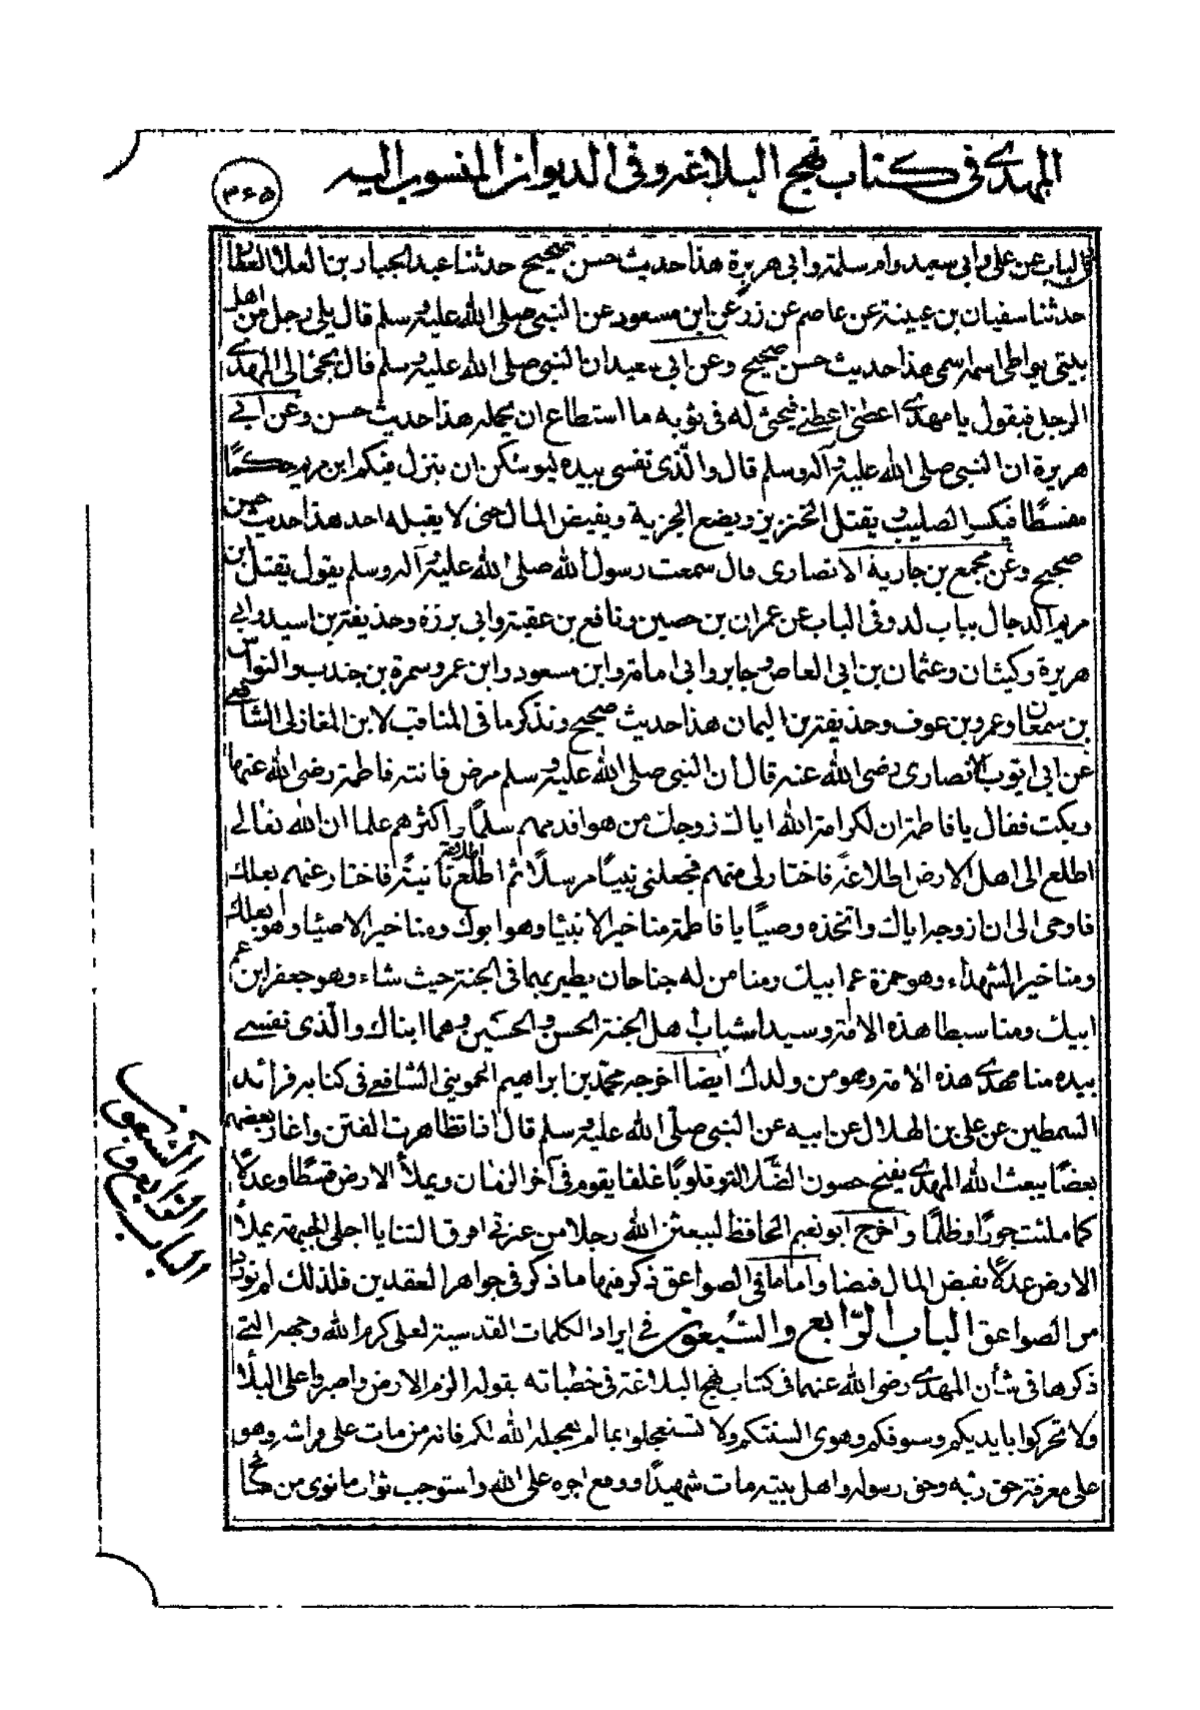 المهدى فى كتاب نهج البلاغه وفى الديوان المنسوب اليه
٣٦٥
فى الباب عن على وابي سعيد وام سلمة وابى هريرة هذا حديث حسن صحيح حدثنا عبد الجبار بن العلاء العطار
حدثنا سفيان بن عيينة عن عاصم عن زر عن ابن مسعود عن النبى صلى الله عليه وسلم قال يلى رجل من اهل
بيتى يواطى اسمه اسمى هذا حديث حسن صحيح وعن ابى سعيد ان النبى صلى الله عليه وسلم قال يجئ الى المهدى
الرجل فيقول يا مهدى اعطنى اعطنى فيحثى له فى ثوبه ما استطاع ان يحمله هذا حديث حسن وعن ابى
هريرة ان النبى صلى الله عليه وآله وسلم قال والّذى نفسى بيده ليوشكن ان ينزل فيكم ابن مريم حكمًا
مقسطًا فيكسر الصليب ويقتل الخنزير ويضع الجزية ويفيض المال حتى لا يقبله احد هذا حديث حسن
صحيح وعن مجمع بن جارية الانصارى قال سمعت رسول الله صلى الله عليه وآله وسلم يقول يقتل ابن
مريم الدجال بباب لد وفى الباب عن عمران بن حصين ونافع بن عقبة وابى برزة وحذيفة بن اسيد وابى
هريرة وكيسان وعثمان بن ابى العاص وجابر وابى امامة وابن مسعود وابن عمر وسمرة بن جندب والنواس
بن سمعان وعمرو بن عوف وحذيفة بن اليمان هذا حديث صحيح ونذكر ما فى المناقب لابن المغازلى الشافعى
عن ابى ايوب الانصارى رضى الله عنه قال ان النبى صلى الله عليه وسلم مرض فاتته فاطمة رضى الله عنها
وبكت فقال يا فاطمة ان لكرامة الله اياك زوجك من هو اقدمهم سلمًا واكثرهم علما ان الله تعالى
اطلع الى اهل الارض اطلاعة فاختارنى منهم فجعلنى نبيًا مرسلًا ثم اطلع اطلاعة ثانية فاختار منهم بعلك
فاوحى الى ان ازوجه اياك واتخذه وصيًا يا فاطمة منا خير الانبياء وهو ابوك ومنا خير الاوصياء وهو بعلك
ومنا خير الشهداء وهو حمزة عم ابيك ومنا من له جناحان يطير بهما فى الجنة حيث شاء وهو جعفر ابن عم
ابيك ومنا سبطا هذه الامة وسيدا شباب اهل الجنة الحسن والحسين وهما ابناك والّذى نفسى
بيده منا مهدى هذه الامة وهو من ولدك ايضًا اخرجه محمّد بن ابراهيم الحموينى الشافعى فى كتابه فرائد
السمطين عن على بن الهلال عن ابيه عن النبى صلّى الله عليه وسلم قال اذا تظاهرت الفتن واغار بعضهم
بعضًا يبعث الله المهدى يفتح حصون الضّلالة وقلوبًا غلفا يقوم فى آخر الزمان ويملأ الارض قسطًا وعدلًا
كما ملئت جورًا وظلمًا واخرج ابو نعيم الحافظ ليبعثن الله رجلا من عترتى افرق الثنايا اجلى الجبهة يملأ
الارض عدلًا يفيض المال فيضا واما ما فى الصواعق ذكر منها ما ذكر فى جواهر العقدين فلذلك لم نورد
من الصواعق الباب الرّابع والسّبعون فى ايراد الكلمات القدسية لعلى كرم الله وجهه التى
ذكرها فى شأن المهدى رضى الله عنهما فى كتاب نهج البلاغة فى خطباته بقوله الزموا الارض واصبروا على البلاء
ولا تحركوا بايديكم وسيوفكم وهوى السنتكم ولا تستعجلوا بما لم يعجله الله لكم فانه من مات على فراشه وهو
على معرفة حق ربّه وحق رسوله واهل بيته مات شهيدًا ووقع اجره على الله واستوجب ثواب ما نوى من صالح
الباب الرّابع والسّبعون